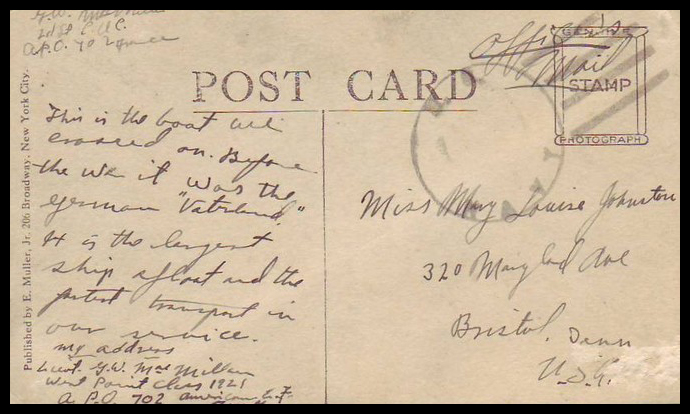 G.W. MacMillan
2nd Lt C.A.C.
A.P.O. 702 France
Officer's
Mail
GENUINE
STAMP
PHOTOGRAPH
POST CARD
NAVY
Published by E. Muller, Jr. 206 Broadway, New York City.
This is the boat we
crossed on. Before
the war it was the
german "Vaterland."
It is the largest
ship afloat and the
fastest transport in
our service.
my address
Lieut. G.W. MacMillan
West Point Class 1921
A P.O 702 American E.F.
Miss Mary Louise Johnston
320 Maryland Ave
Bristol, Tenn
U.S.A.